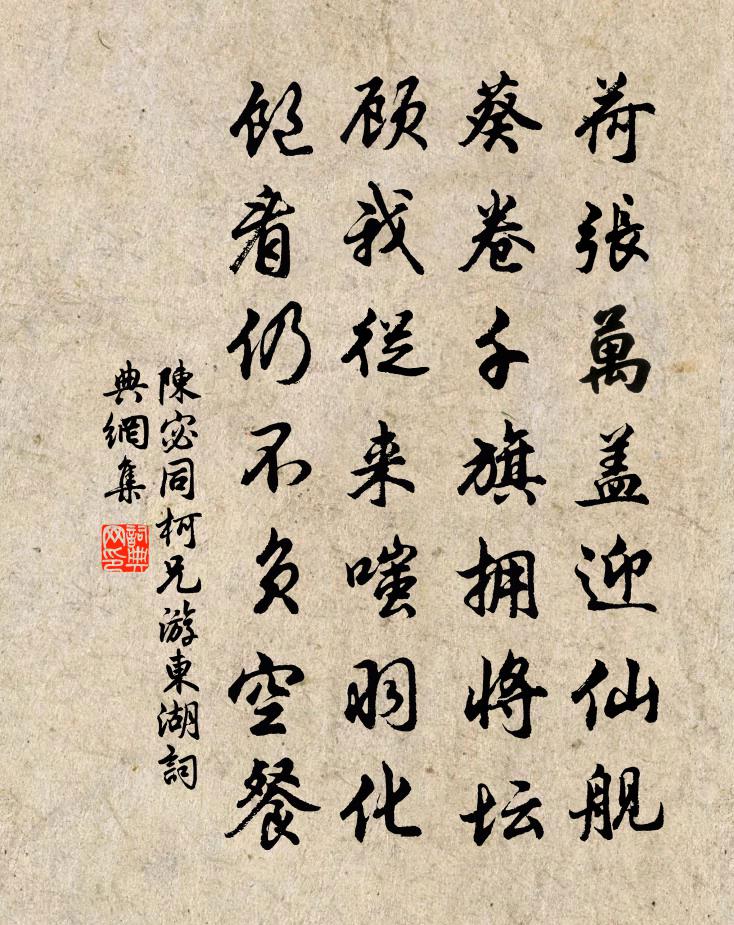 荷張萬盖迎仙舰
葵卷千旗拥将坛
顾我從来嗤羽化
饱看仍不负空餐
陳宓同柯兄游東湖詞
典網集
詞典网印